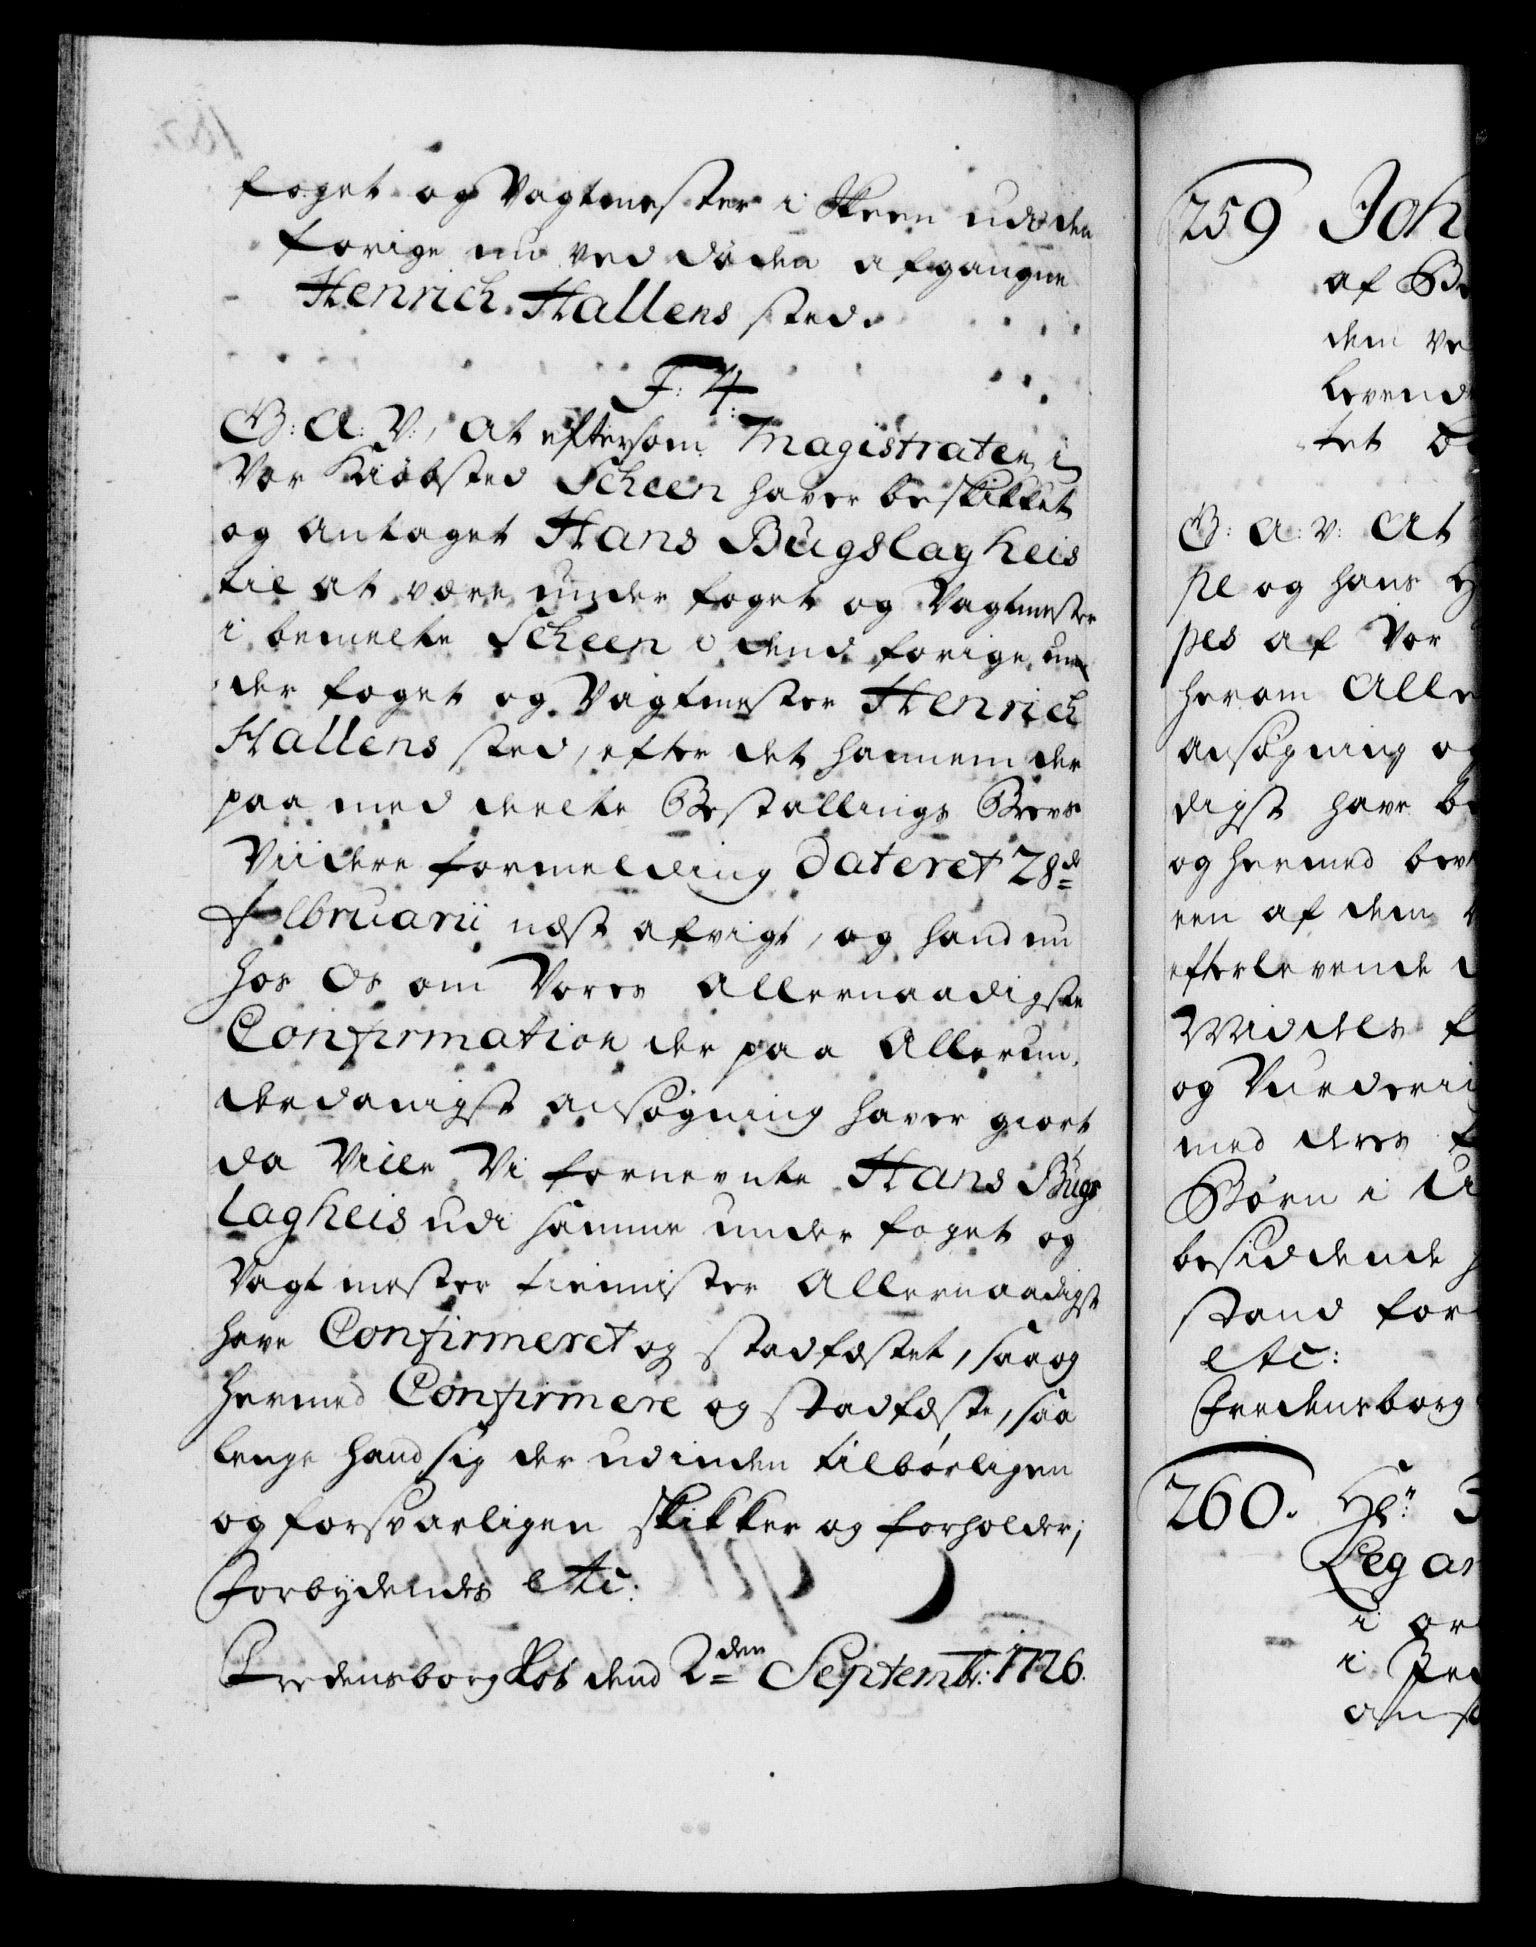 foget og Vagtmester i Skeen udi den
forige nu ved døden afgangne
Henrich Hallens sted.
F: 4.
G: A: V:, At eftersom Magistraten i
Vor Kiøbsted Scheen haver beskikket
og antaget Hans Bugslagheis
til at være under foget og Vagtmester
i bemelte Scheen i dend forige un¬
der foget og Vagtmester Henrich
Hallens sted, efter det hannem der
paa med deelte Bestallings Brevs
Viidere formelding dateret 28de
Februarii nest afvigt, og hand nu
hos Os om Vores Allernaadigste
Confirmation der paa Allerun¬
derdanigst ansøgning haver giort,
da Ville Vi fornevnte Hans Bugs
lagheis udi samme under foget og
Vagtmester tienister Allernaadigst
have Confirmeret og stadfæstet, saa og
hermed Confirmere og stadfæste, saa
lenge hand sig der udinden tilbørligen
og forsvarligen skikker og forholder;
Forbydendes etc:
Fredensborg Slot dend 2den Septembr: 1726.
259 Joh
af
dem ve
levend
tet
G: A: V: At
pe og hans
pes af Vor
herom Alle
ansøgning og
digst have be
og hermed bev
een af dem
efterlevende
Middels f
og Vurderi
med deres
Børn i U
besiddende
stand for
etc:
Fredensborg
260. Hr:
Legar
i
i
ans